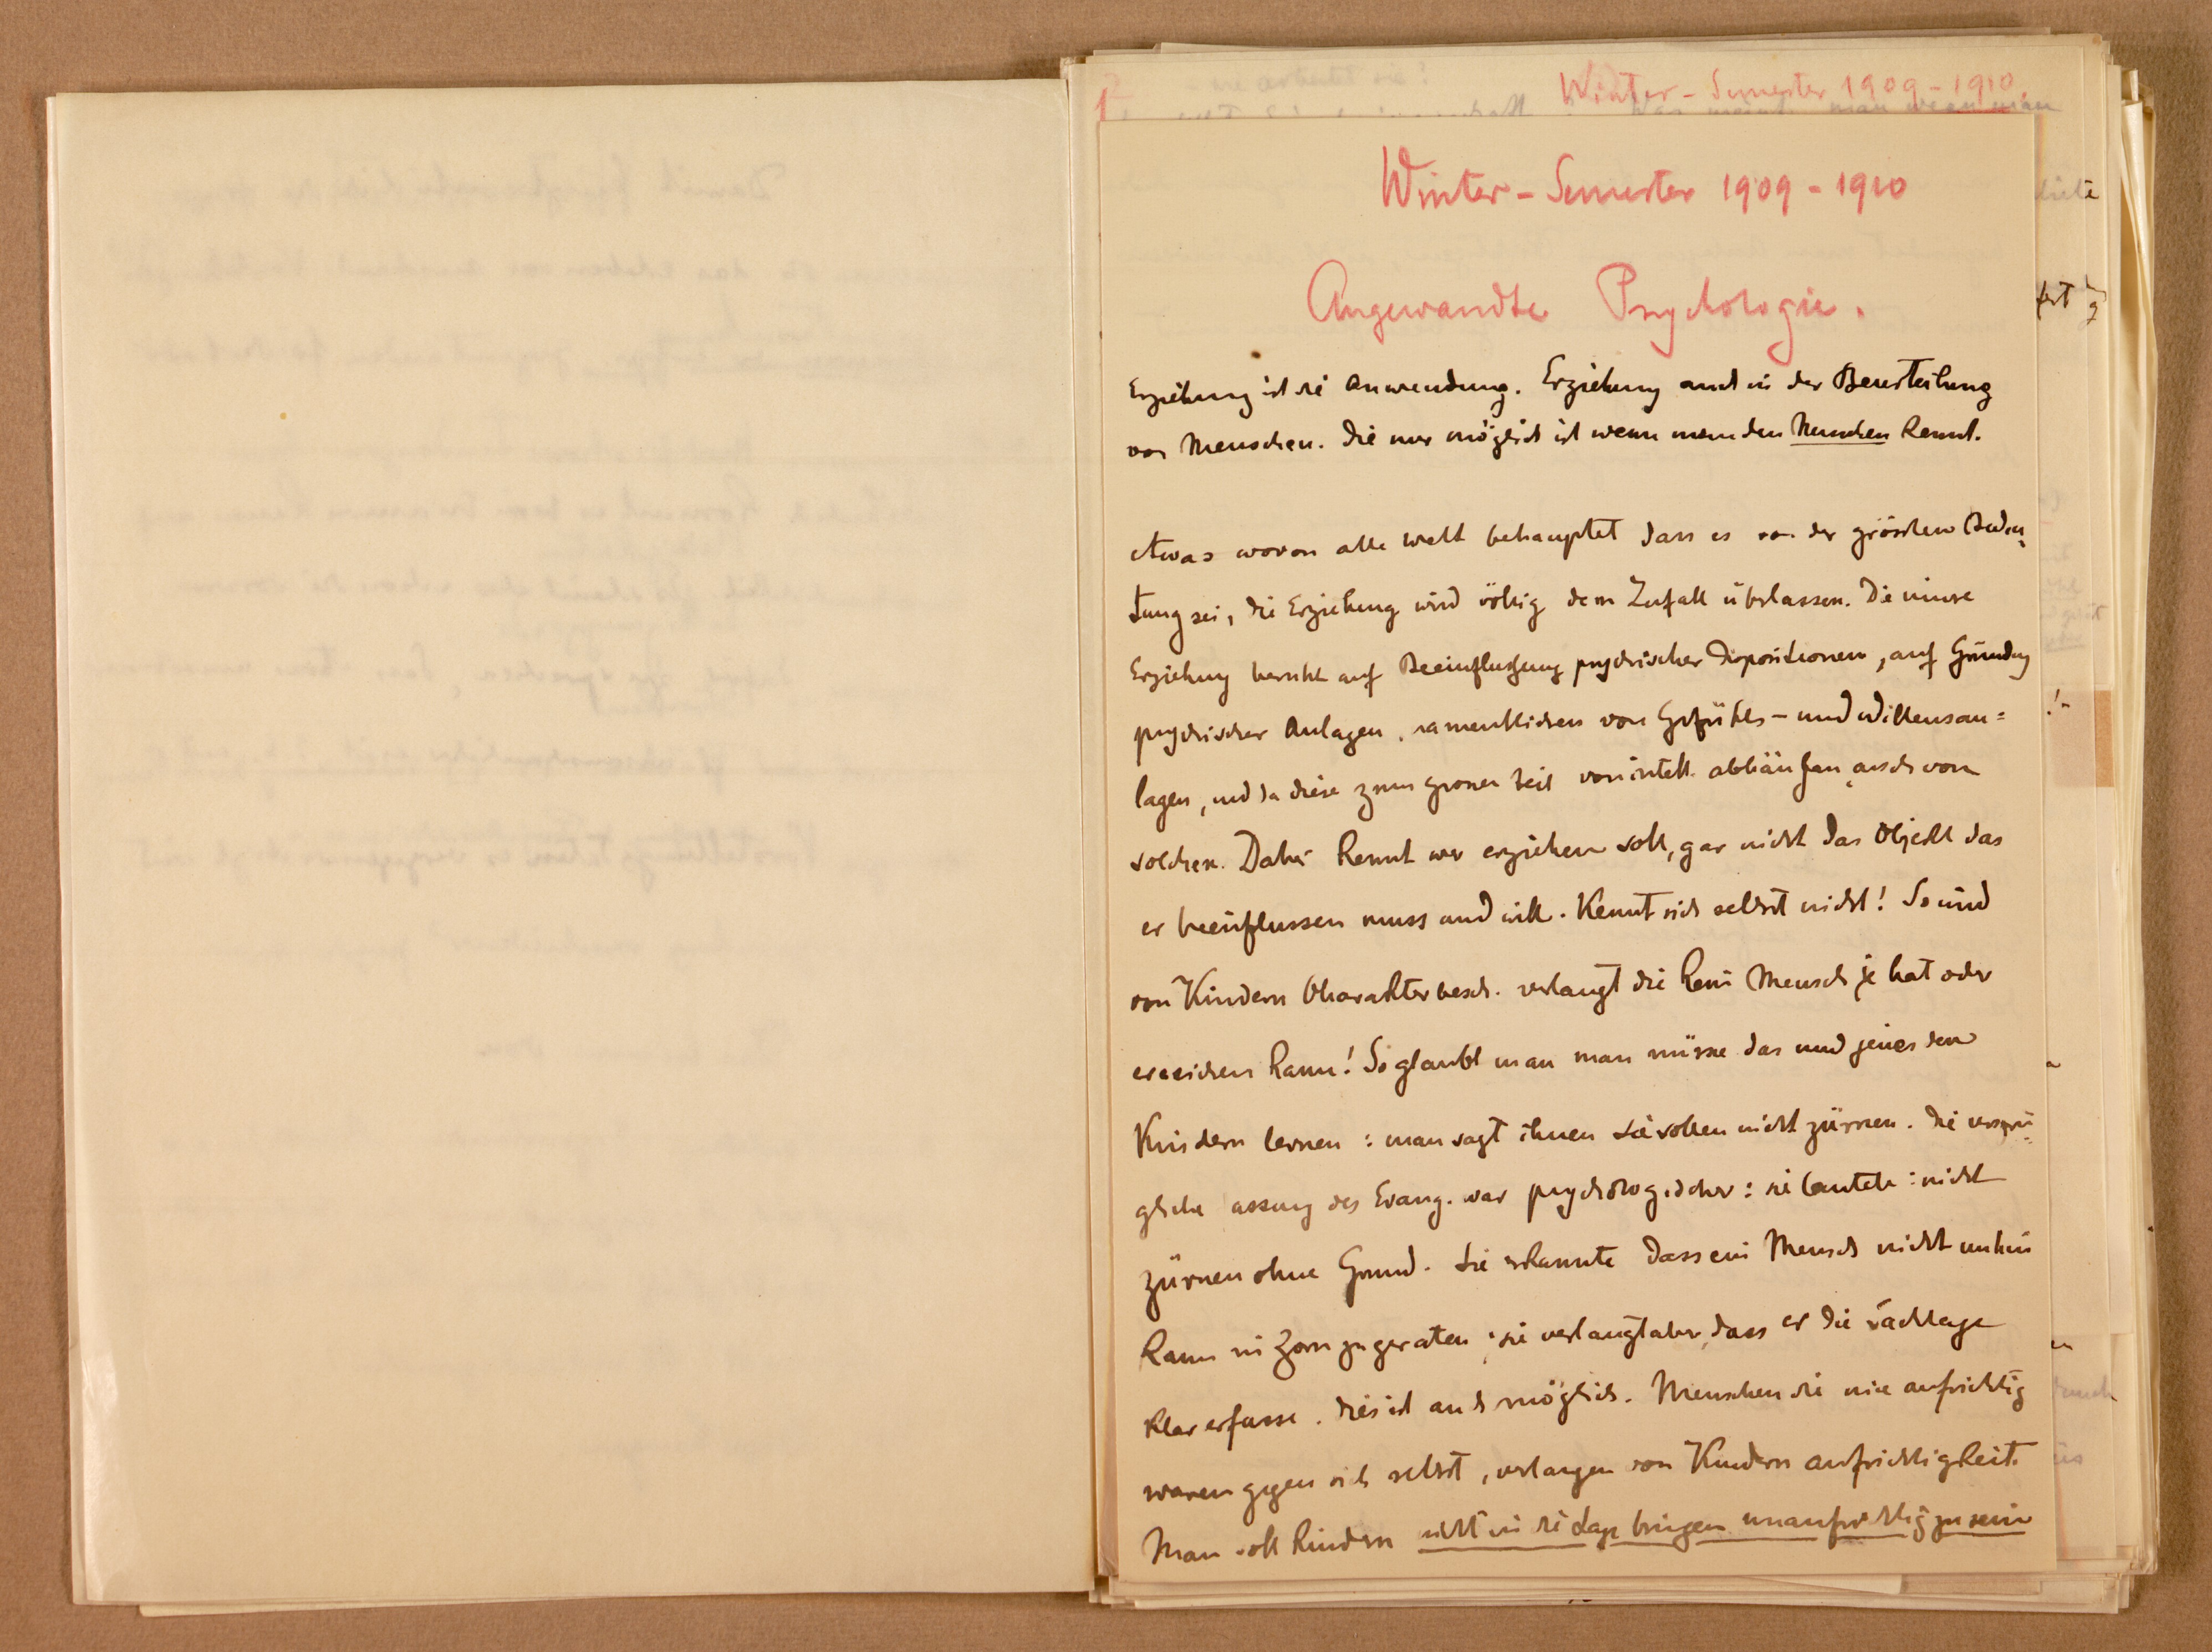 Winter-Semester 1909-1910.
Winter-Semester 1909-1910
Angewandte Psychologie.
Erziehung ist die Anwendung. Erziehung und in der Beurteilung
von Menschen. Die nur möglich ist wenn man den Menschen kennt.
etwas wovon alle Welt behauptet dass es von der grössten Bedeu-
tung sei, die Erziehung wird völlig dem Zufall überlassen. Die innere
Erziehung beruht auf Beeinflussung psychischer Dispositionen, auf Gründung
psychischer Anlagen, namentlichen von Gefühls- und Willensan=
lagen, und da diese zum grossen Teil von intell. abhängen, auch von
solchen. Dabei kennt wer erziehen soll, gar nicht das Objekt das
er beeinflussen muss und will. Kennt sich selbst nicht! So wird
von Kindern Charakterbesch. verlangt die kein Mensch je hat oder
erreichen kann! So glaubt man man müsse das und jenes den
Kindern lernen: man sagt ihnen sie sollen nicht zürnen. Die ursprü-
gliche assung des Evang. war psychologischer: sie lautete: nicht
zürnen ohne Grund. Sie erkannte dass ein Mensch nicht umhin
kann in Zorn zu geraten; sie verlangt aber, dass er die Sachlage
klar erfasse. Dies ist auch möglich. Menschen die nie aufrichtig
waren gegen sich selbst, verlangen von Kindern Aufrichtigkeit.
Man soll Kindern nicht in die Lage bringen unaufrichtig zu sein